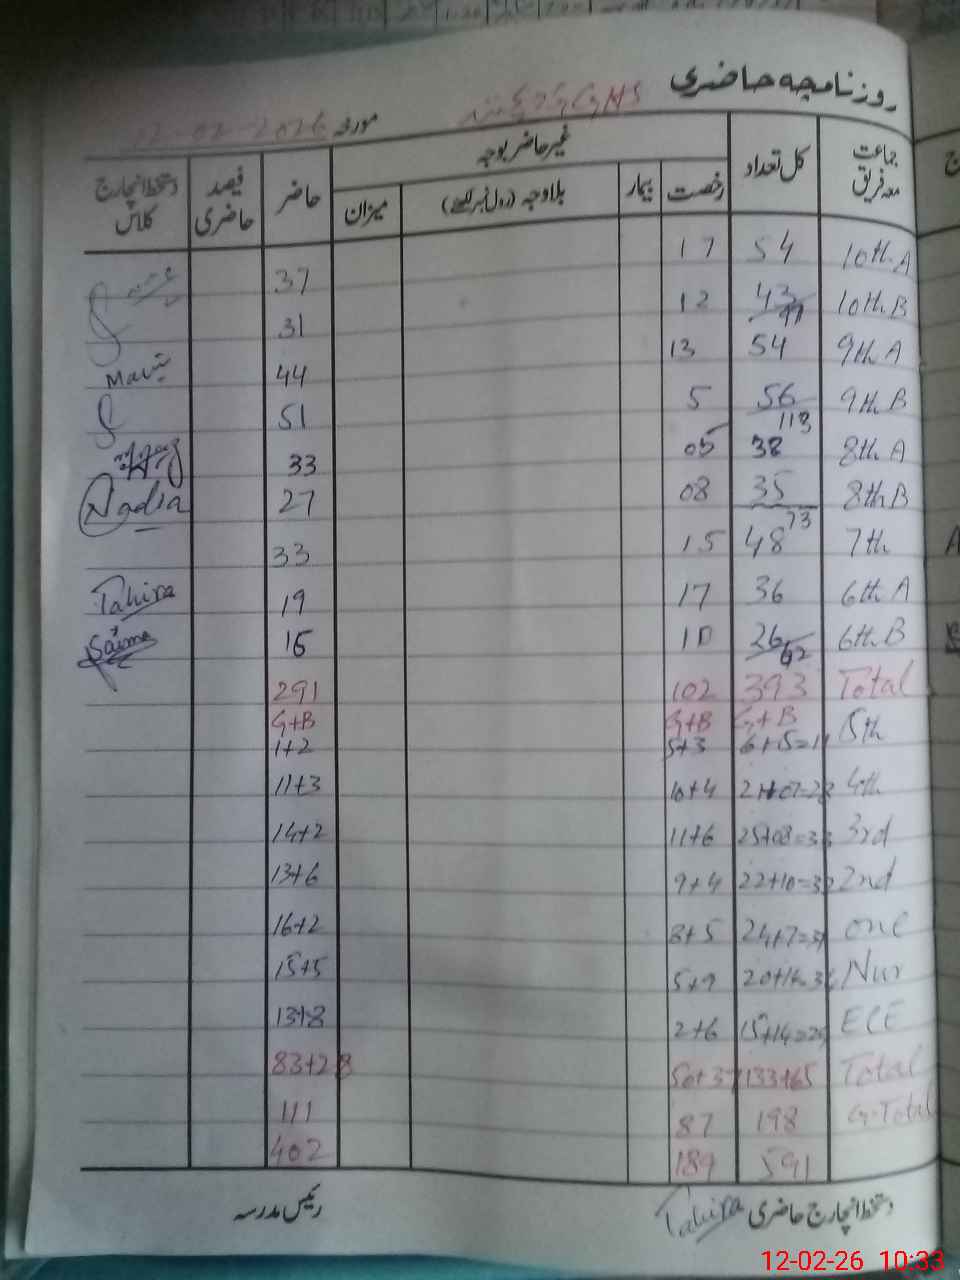 روزنامچہ حاضری
GGHS مورخہ 12-02-2026
جماعت معہ فریق کل تعداد غیر حاضر بوجہ حاضر فیصد حاضری دستخط انچارج کلاس
رخصت بیمار بلاوجہ (رول نمبر لکھیئے) میزان
10th A 54 17 37
10th B 43 12 31
9th A 54 13 44 Mavi
9th B 56 5 51
113
8th A 38 05 33
8th B 35 08 27 Nadia
73
7th 48 15 33
6th A 36 17 19 Tahira
6th B 26 10 16 Saima
62
Total 393 102 291
5th G+B G+B G+B
5+3 1+2
4th 21+07=28 10+4 11+3
3rd 25+08=33 11+6 14+2
2nd 22+10=32 9+4 13+6
one 24+7=31 8+5 16+2
Nur 5+9 15+5
ECE 15+14=29 2+6 13+8
Total 133+65 50+37 83+28
G.Total 198 87 111
591 189 402
دستخط انچارج حاضری Tahira رئیس مدرسہ
12-02-26 10:33